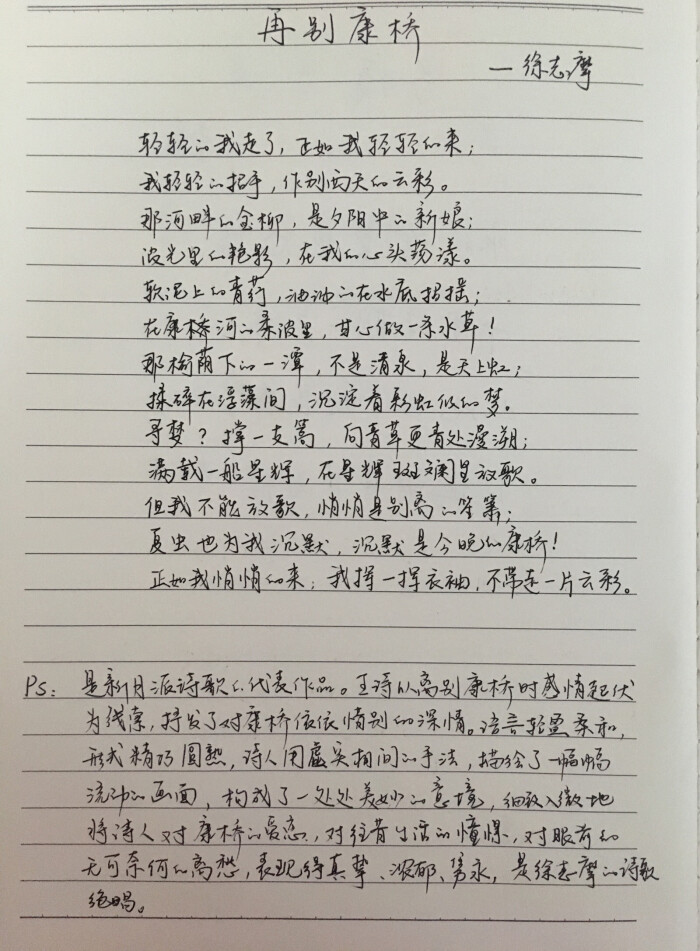 再别康桥
—徐志摩
轻轻的我走了，正如我轻轻的来；
我轻轻的招手，作别西天的云彩。
那河畔的金柳，是夕阳中的新娘；
波光里的艳影，在我的心头荡漾。
软泥上的青荇，油油的在水底招摇；
在康桥河的柔波里，甘心做一条水草！
那榆荫下的一潭，不是清泉，是天上虹；
揉碎在浮藻间，沉淀着彩虹似的梦。
寻梦？撑一支篙，向青草更青处漫溯；
满载一船星辉，在星辉斑斓里放歌。
但我不能放歌，悄悄是别离的笙箫；
夏虫也为我沉默，沉默是今晚的康桥！
正如我悄悄的来；我挥一挥衣袖，不带走一片云彩。
Ps：是新月派诗歌的代表作品。全诗以离别康桥时感情起伏
为线索，抒发了对康桥依依惜别的深情。语言轻盈柔和，
形式精巧圆熟，诗人用虚实相间的手法，描绘了一幅幅
流动的画面，构成了一处处美妙的意境，细致入微地
将诗人对康桥的爱恋，对往昔生活的憧憬，对眼前的
无可奈何的离愁，表现得真挚、浓郁、隽永，是徐志摩的诗歌
绝唱。